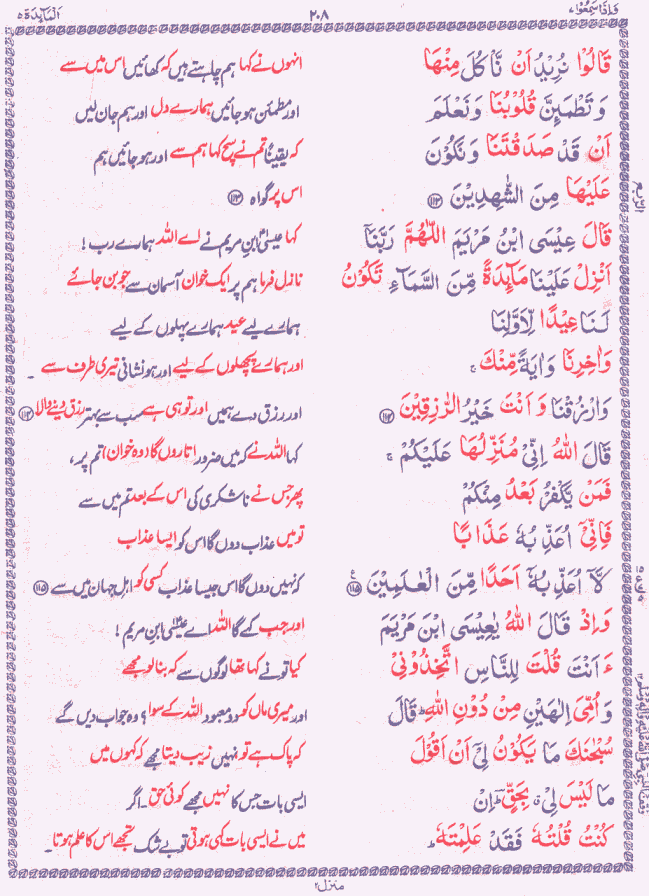 وَاِذَا سَمِعُوْا ۷ ۲۰۸ اَلْمَآئِدَة ۵
قَالُوْا نُرِيْدُ اَنْ نَّاْكُلَ مِنْهَا انہوں نے کہا ہم چاہتے ہیں کہ کھائیں اس میں سے
وَتَطْمَئِنَّ قُلُوْبُنَا وَنَعْلَمَ اور مطمئن ہو جائیں ہمارے دل اور ہم جان لیں
اَنْ قَدْ صَدَقْتَنَا وَنَكُوْنَ کہ یقیناً تم نے سچ کہا ہم سے اور ہو جائیں ہم
عَلَيْهَا مِنَ الشّٰهِدِيْنَ ۝۱۱۳ اس پر گواہ ۝۱۱۳
قَالَ عِيْسَى ابْنُ مَرْيَمَ اللّٰهُمَّ رَبَّنَآ کہا عیسیٰ ابن مریم نے اے اللہ ہمارے رب !
اَنْزِلْ عَلَيْنَا مَآئِدَةً مِّنَ السَّمَآءِ تَكُوْنُ نازل فرما ہم پر ایک خوان آسمان سے جو بن جائے
لَنَا عِيْدًا لِّاَوَّلِنَا ہمارے لیے عید ہمارے پہلوں کے لیے
وَاٰخِرِنَا وَاٰيَةً مِّنْكَ ۚ اور ہمارے پچھلوں کے لیے اور ہو نشانی تیری طرف سے ۔
وَارْزُقْنَا وَاَنْتَ خَيْرُ الرّٰزِقِيْنَ ۝۱۱۴ اور رزق دے ہمیں اور تو ہی ہے سب سے بہتر رزق دینے والا ۝۱۱۴
قَالَ اللّٰهُ اِنِّىْ مُنَزِّلُهَا عَلَيْكُمْ ۚ کہا اللہ نے کہ میں ضرور اتاروں گا (وہ خوان) تم پر ،
فَمَنْ يَّكْفُرْ بَعْدُ مِنْكُمْ پھر جس نے ناشکری کی اس کے بعد تم میں سے
فَاِنِّىْٓ اُعَذِّبُهٗ عَذَابًا تو میں عذاب دوں گا اس کو ایسا عذاب
لَّآ اُعَذِّبُهٗٓ اَحَدًا مِّنَ الْعٰلَمِيْنَ ۝۱۱۵ کہ نہیں دوں گا اس جیسا عذاب کسی کو اہل جہان میں سے ۝۱۱۵
وَاِذْ قَالَ اللّٰهُ يٰعِيْسَى ابْنَ مَرْيَمَ اور جب کہے گا اللہ اے عیسیٰ ابن مریم !
ءَاَنْتَ قُلْتَ لِلنَّاسِ اتَّخِذُوْنِىْ کیا تو نے کہا تھا لوگوں سے کہ بنا لو مجھے
وَاُمِّىَ اِلٰهَيْنِ مِنْ دُوْنِ اللّٰهِ ؕ قَالَ اور میری ماں کو دو معبود اللہ کے سوا ؟ وہ جواب دیں گے
سُبْحٰنَكَ مَا يَكُوْنُ لِىْٓ اَنْ اَقُوْلَ کہ پاک ہے تو نہیں زیب دیتا مجھے کہ کہوں میں
مَا لَيْسَ لِىْ ۗ بِحَقٍّ ؕ اِنْ ایسی بات جس کا نہیں مجھے کوئی حق ۔ اگر
كُنْتُ قُلْتُهٗ فَقَدْ عَلِمْتَهٗ ؕ میں نے ایسی بات کہی ہوتی تو بے شک تجھے اس کا علم ہوتا ۔
منزل ۲